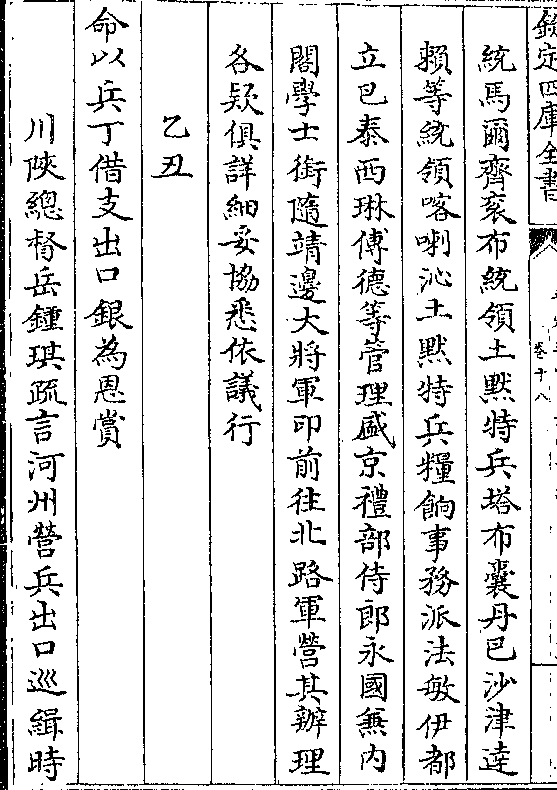 欽定四庫全書
卷十八
統馬爾齊袞布統領土黙特兵塔布囊丹巴沙津達
賴等統領喀喇沁土黙特兵糧餉事務派法敏伊都
立巴泰西琳傅德等管理盛京禮部侍郎永國兼内
閣學士銜隨靖邊大將軍印前往北路軍營其辦理
各欵俱詳細妥協悉依議行
乙丑
命以兵丁借支出口銀為恩賞
川陜總督岳鍾琪疏言河州營兵出口巡緝時